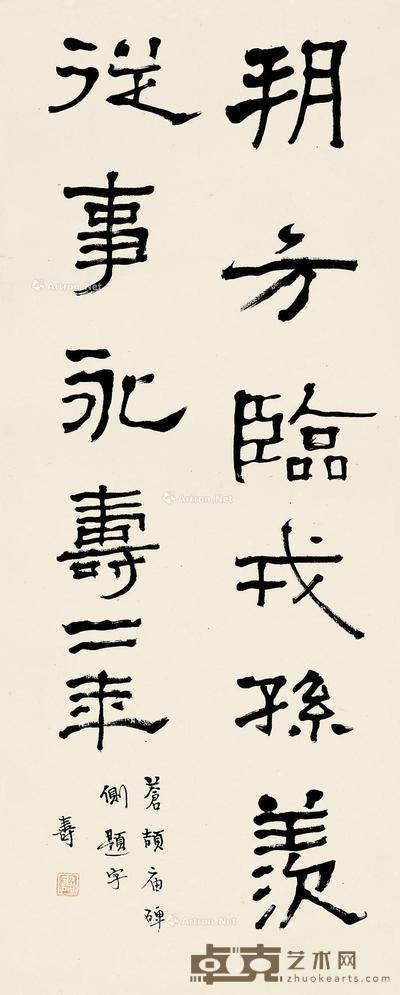 朔方臨戎孫羨
從事永壽二年
蒼頡廟碑
側題字
壽
Artron.Net
Artron.Net
Artron.Net
卓克艺术网
zhuokearts.com